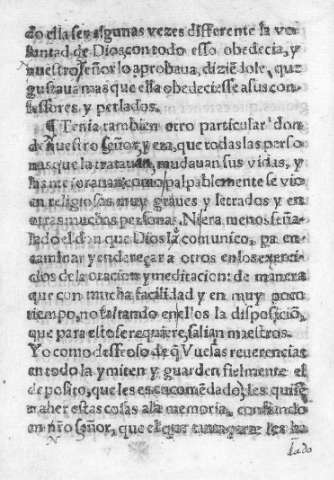 do ella ser algunas vezes differente la vo-
luntad de Dios, con todo esso obedecia, y
nuestro señor lo aprobaua, diziẽdole, que
gustaua mas que ella obedeciesse a sus con
fessores y perlados.
¶ Tenia tambien otro particular don
de nuestro señor, y era, que todas las perso
nas que la tratauan, mudauan sus vidas, y
como palpablemente se vio
en religiosos muy graues y letrados y en
otras muchas personas. Ni era menos seña-
lado el don que Dios la comunico, pa en-
caminar y endereçar a otros en los exerci-
cios de la oracion y meditacion: de manera
que con mucha facilidad y en muy poco
tiempo, no faltando en ellos la disposiciõ,
que para esto se requiere, salian maestros.
Y o como desseoso de q̃ Vuessas reuerencias
en todo la ymiten y guarden fielmente el
deposito, que les es encomẽdado, les quise
traher estas cosas a la memoria, confiando
en nr̃o señor, que el que
lado